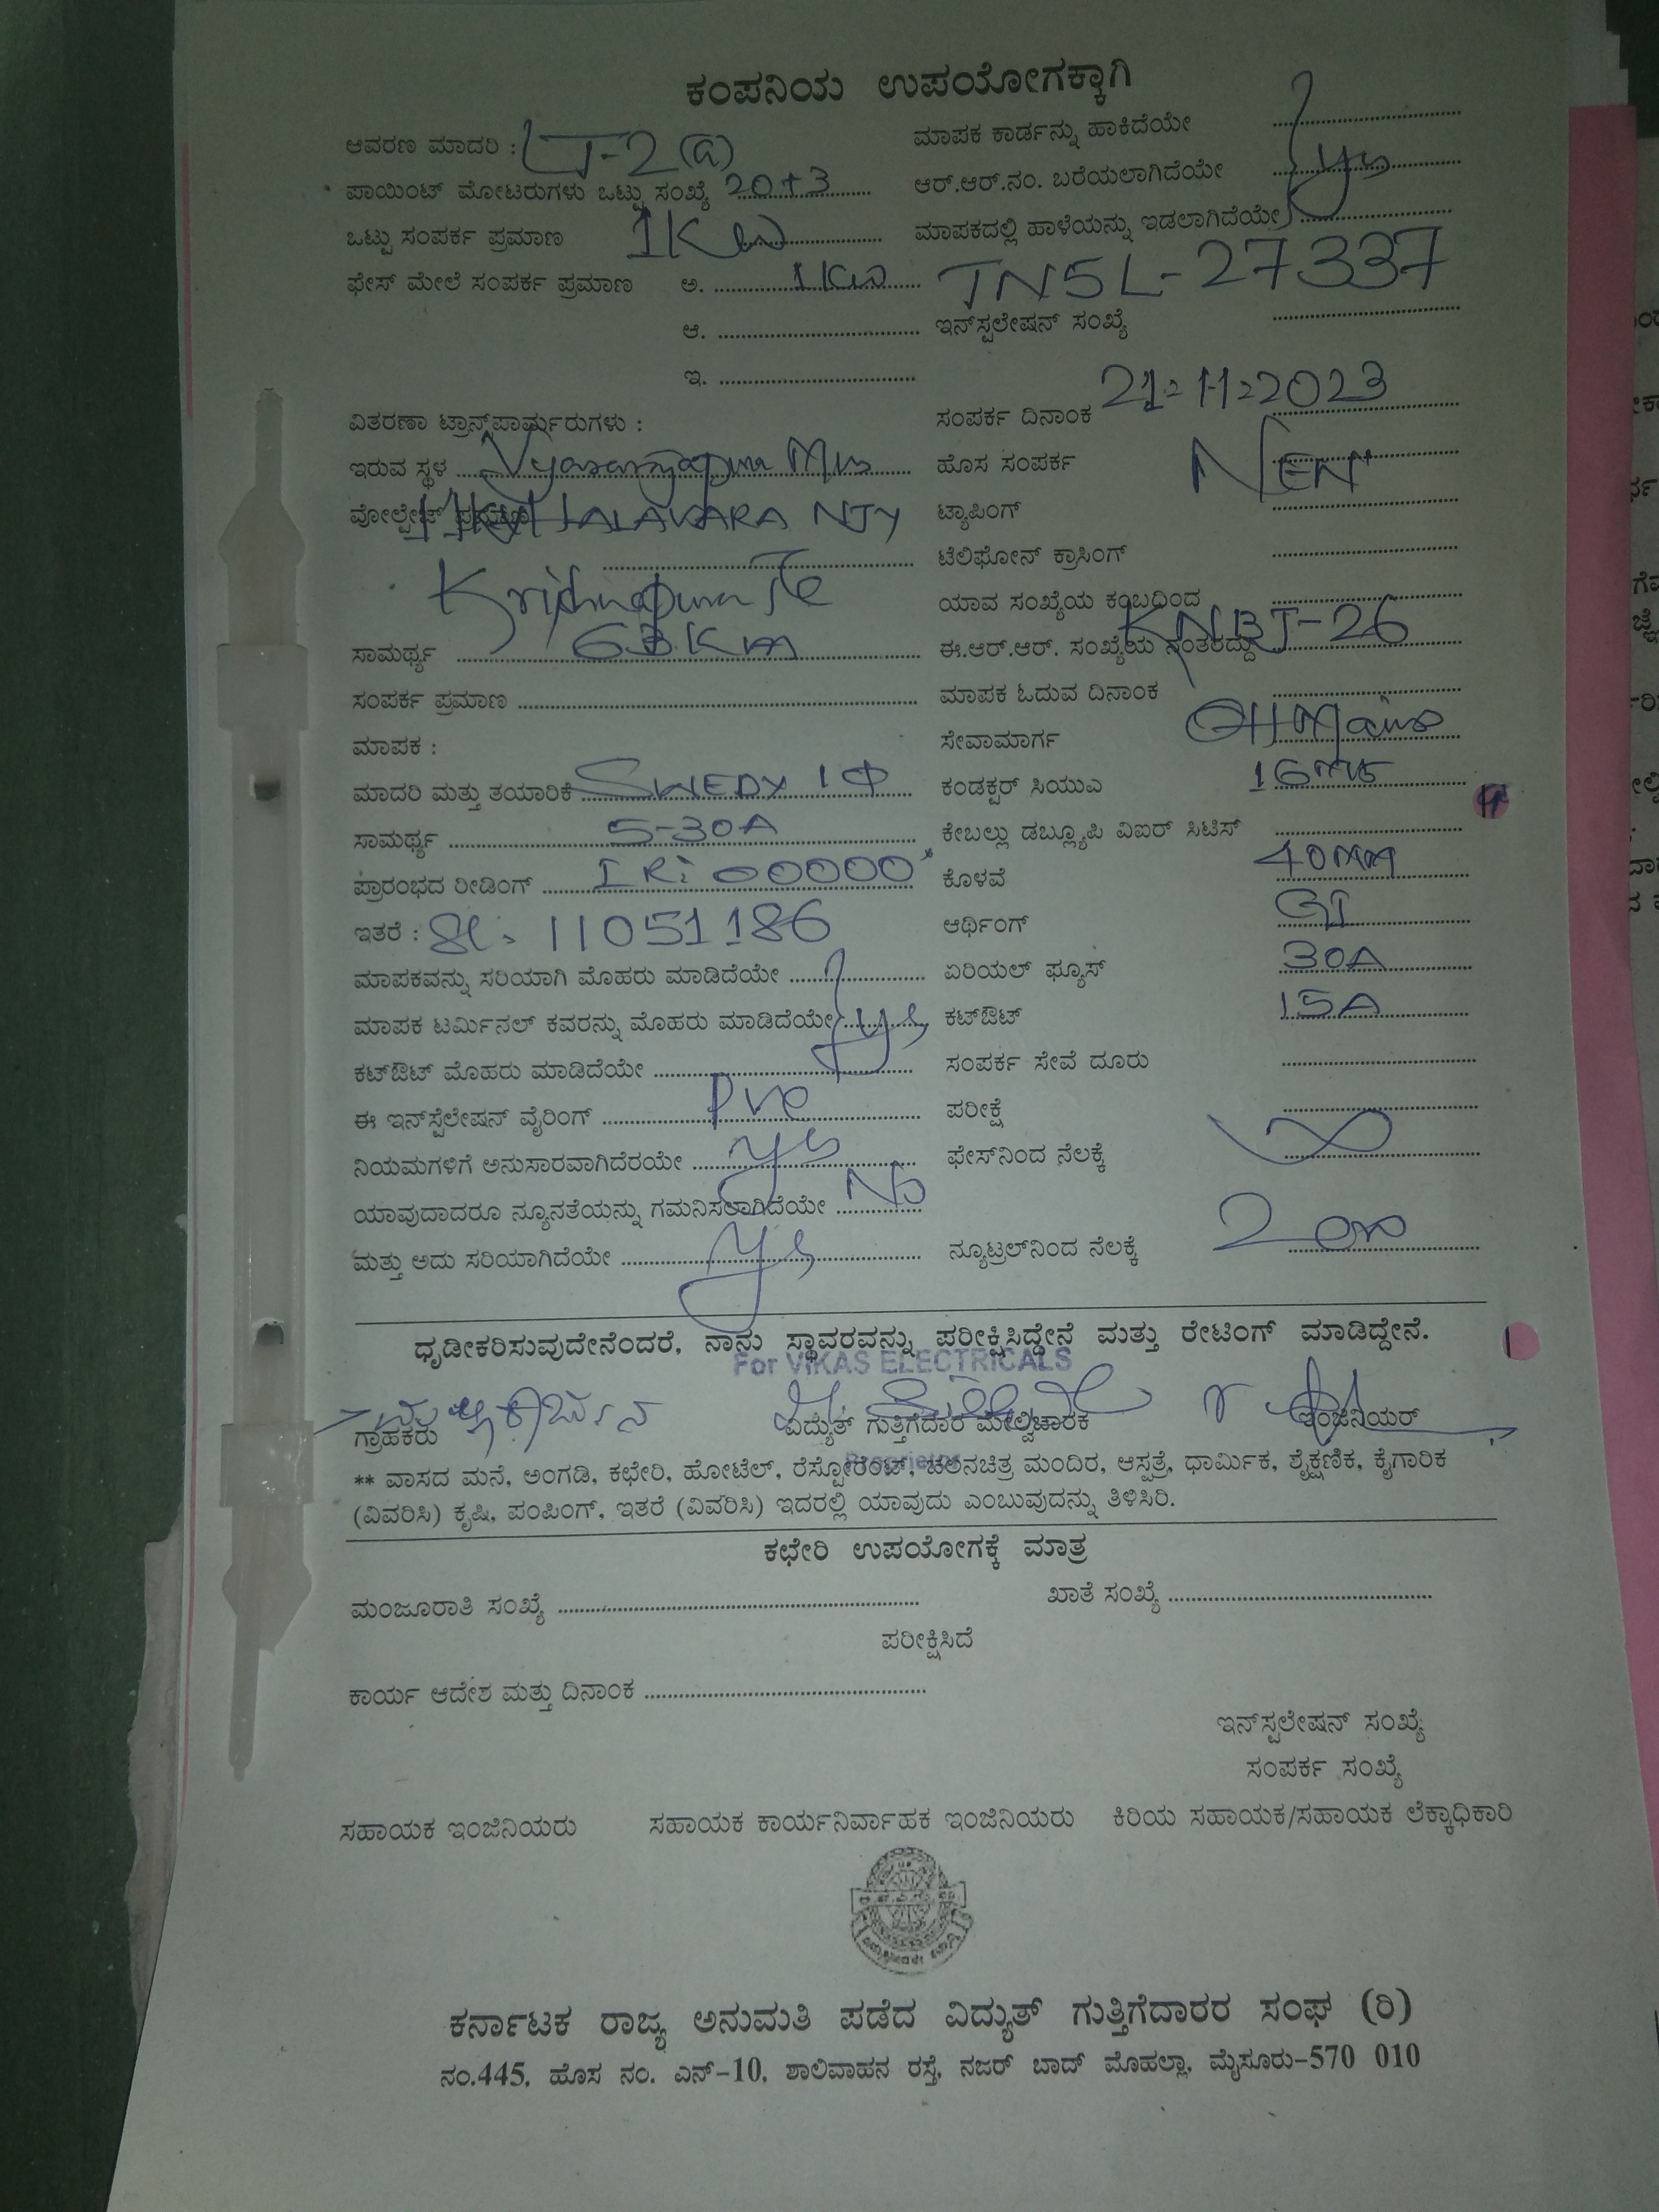 ಕಂಪನಿಯ ಉಪಯೋಗಕ್ಕಾಗಿ
ಆವರಣ ಮಾದರಿ : LT-2(a)
ಮಾಪಕ ಕಾರ್ಡನ್ನು ಹಾಕಿದೆಯೇ
ಪಾಯಿಂಟ್ ಮೋಟರುಗಳು ಒಟ್ಟು ಸಂಖ್ಯೆ 20+3
ಆರ್.ಆರ್.ನಂ. ಬರೆಯಲಾಗಿದೆಯೇ yes
ಒಟ್ಟು ಸಂಪರ್ಕ ಪ್ರಮಾಣ 1Kw
ಮಾಪಕದಲ್ಲಿ ಹಾಳೆಯನ್ನು ಇಡಲಾಗಿದೆಯೇ
ಫೇಸ್ ಮೇಲೆ ಸಂಪರ್ಕ ಪ್ರಮಾಣ ಅ. 1Kw
TN5L-27337
ಆ.
ಇನ್‌ಸ್ಟಲೇಷನ್ ಸಂಖ್ಯೆ
ಇ.
ವಿತರಣಾ ಟ್ರಾನ್ಸ್‌ಪಾರ್ಮರುಗಳು :
ಸಂಪರ್ಕ ದಿನಾಂಕ 21-11-2023
ಇರುವ ಸ್ಥಳ
ಹೊಸ ಸಂಪರ್ಕ NEW
ವೋಲ್ಟೇಜ್ ಪ್ರಮಾಣ 11KV HALAVARA NJY
ಟ್ಯಾಪಿಂಗ್
ಟೆಲಿಫೋನ್ ಕ್ರಾಸಿಂಗ್
Krishnapura Tc
ಯಾವ ಸಂಖ್ಯೆಯ ಕಂಬದಿಂದ
ಸಾಮರ್ಥ್ಯ 63 KVA
ಈ.ಆರ್.ಆರ್. ಸಂಖ್ಯೆಯ ನಂತರದ್ದು KNBJ-26
ಸಂಪರ್ಕ ಪ್ರಮಾಣ
ಮಾಪಕ ಓದುವ ದಿನಾಂಕ
ಮಾಪಕ :
ಸೇವಾಮಾರ್ಗ OH Mains
ಮಾದರಿ ಮತ್ತು ತಯಾರಿಕೆ SWEDY 1Φ
ಕಂಡಕ್ಟರ್ ಸಿಯುಎ
ಸಾಮರ್ಥ್ಯ 5-30A
ಕೇಬಲ್ಲು ಡಬ್ಲ್ಯೂಪಿ ವಿಐರ್ ಸಿಟಿಸ್
ಪ್ರಾರಂಭದ ರೀಡಿಂಗ್ IR: 00000
ಕೊಳವೆ 40mm
ಇತರೆ : Sl. 11051186
ಆರ್ಥಿಂಗ್ GI
ಮಾಪಕವನ್ನು ಸರಿಯಾಗಿ ಮೊಹರು ಮಾಡಿದೆಯೇ
ಏರಿಯಲ್ ಫ್ಯೂಸ್ 30A
ಮಾಪಕ ಟರ್ಮಿನಲ್ ಕವರನ್ನು ಮೊಹರು ಮಾಡಿದೆಯೇ yes
ಕಟ್‌ಔಟ್ 15A
ಕಟ್‌ಔಟ್ ಮೊಹರು ಮಾಡಿದೆಯೇ
ಸಂಪರ್ಕ ಸೇವೆ ದೂರು
ಈ ಇನ್‌ಸ್ಟೆಲೇಷನ್ ವೈರಿಂಗ್ pvc
ಪರೀಕ್ಷೆ
ನಿಯಮಗಳಿಗೆ ಅನುಸಾರವಾಗಿದೆರಯೇ yes
ಫೇಸ್‌ನಿಂದ ನೆಲಕ್ಕೆ ∞
ಯಾವುದಾದರೂ ನ್ಯೂನತೆಯನ್ನು ಗಮನಿಸಲಾಗಿದೆಯೇ No
ಮತ್ತು ಅದು ಸರಿಯಾಗಿದೆಯೇ yes
ನ್ಯೂಟ್ರಲ್‌ನಿಂದ ನೆಲಕ್ಕೆ
ಧೃಡೀಕರಿಸುವುದೇನೆಂದರೆ, ನಾನು ಸ್ಥಾವರವನ್ನು ಪರೀಕ್ಷಿಸಿದ್ದೇನೆ ಮತ್ತು ರೇಟಿಂಗ್ ಮಾಡಿದ್ದೇನೆ.
For VIKAS ELECTRICALS
ಗ್ರಾಹಕರು ವಿದ್ಯುತ್ ಗುತ್ತಿಗೆದಾರ ಮೇಲ್ವಿಚಾರಕ ಇಂಜಿನಿಯರ್
Proprietor
** ವಾಸದ ಮನೆ, ಅಂಗಡಿ, ಕಛೇರಿ, ಹೋಟೆಲ್, ರೆಸ್ಟೋರೆಂಟ್, ಚಲನಚಿತ್ರ ಮಂದಿರ, ಆಸ್ಪತ್ರೆ, ಧಾರ್ಮಿಕ, ಶೈಕ್ಷಣಿಕ, ಕೈಗಾರಿಕ
(ವಿವರಿಸಿ) ಕೃಷಿ, ಪಂಪಿಂಗ್, ಇತರೆ (ವಿವರಿಸಿ) ಇದರಲ್ಲಿ ಯಾವುದು ಎಂಬುವುದನ್ನು ತಿಳಿಸಿರಿ.
ಕಛೇರಿ ಉಪಯೋಗಕ್ಕೆ ಮಾತ್ರ
ಮಂಜೂರಾತಿ ಸಂಖ್ಯೆ
ಖಾತೆ ಸಂಖ್ಯೆ
ಪರೀಕ್ಷಿಸಿದೆ
ಕಾರ್ಯ ಆದೇಶ ಮತ್ತು ದಿನಾಂಕ
ಇನ್‌ಸ್ಟಲೇಷನ್ ಸಂಖ್ಯೆ
ಸಂಪರ್ಕ ಸಂಖ್ಯೆ
ಸಹಾಯಕ ಇಂಜಿನಿಯರು ಸಹಾಯಕ ಕಾರ್ಯನಿರ್ವಾಹಕ ಇಂಜಿನಿಯರು ಕಿರಿಯ ಸಹಾಯಕ/ಸಹಾಯಕ ಲೆಕ್ಕಾಧಿಕಾರಿ
ಕರ್ನಾಟಕ ರಾಜ್ಯ ಅನುಮತಿ ಪಡೆದ ವಿದ್ಯುತ್ ಗುತ್ತಿಗೆದಾರರ ಸಂಘ (ರಿ)
ನಂ.445, ಹೊಸ ನಂ. ಎನ್-10, ಶಾಲಿವಾಹನ ರಸ್ತೆ, ನಜರ್ ಬಾದ್ ಮೊಹಲ್ಲಾ, ಮೈಸೂರು-570 010